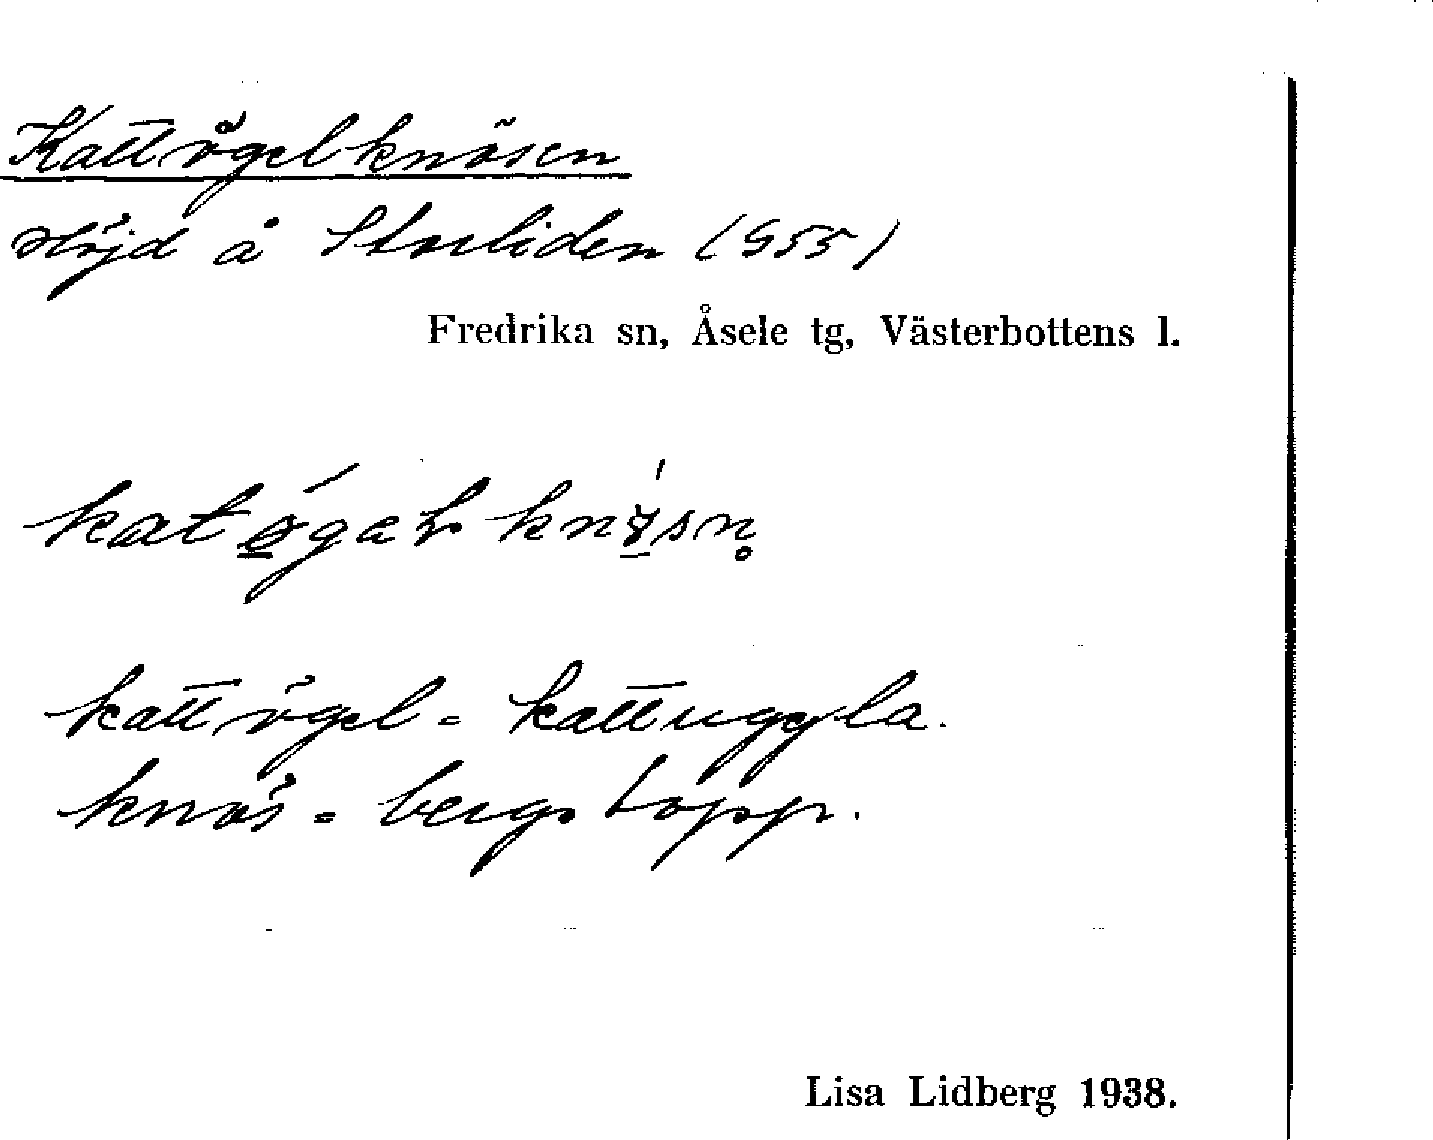 Kattögelknösen
Höjd å Storliden (G55)
Fredrika sn, Åsele tg, Västerbottens l.
kattögel = kattuggla.
knös = bergstopp.
Lisa Lidberg 1938.